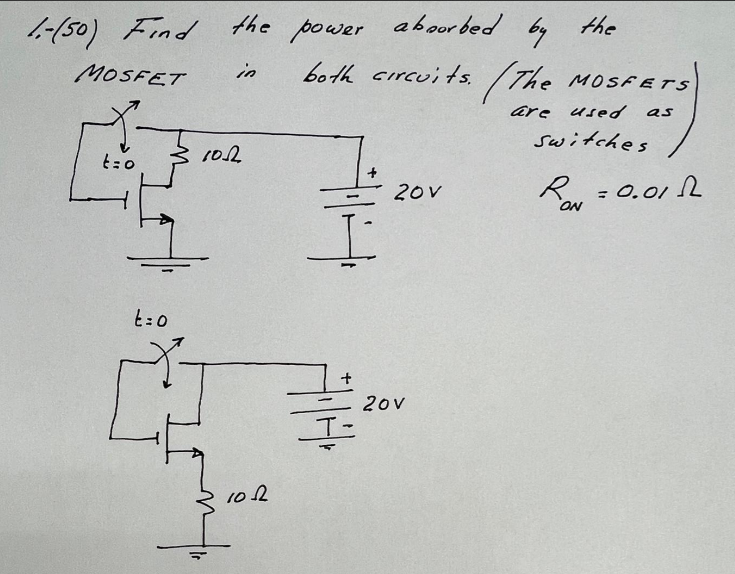 1.-(50) Find the power aboorbed by the
MOSFET in both circuits. (The MOSFETS
are used as
switches)
t=0
10Ω
+
20V
-
R_ON = 0.01 Ω
t=0
+
20V
-
10Ω